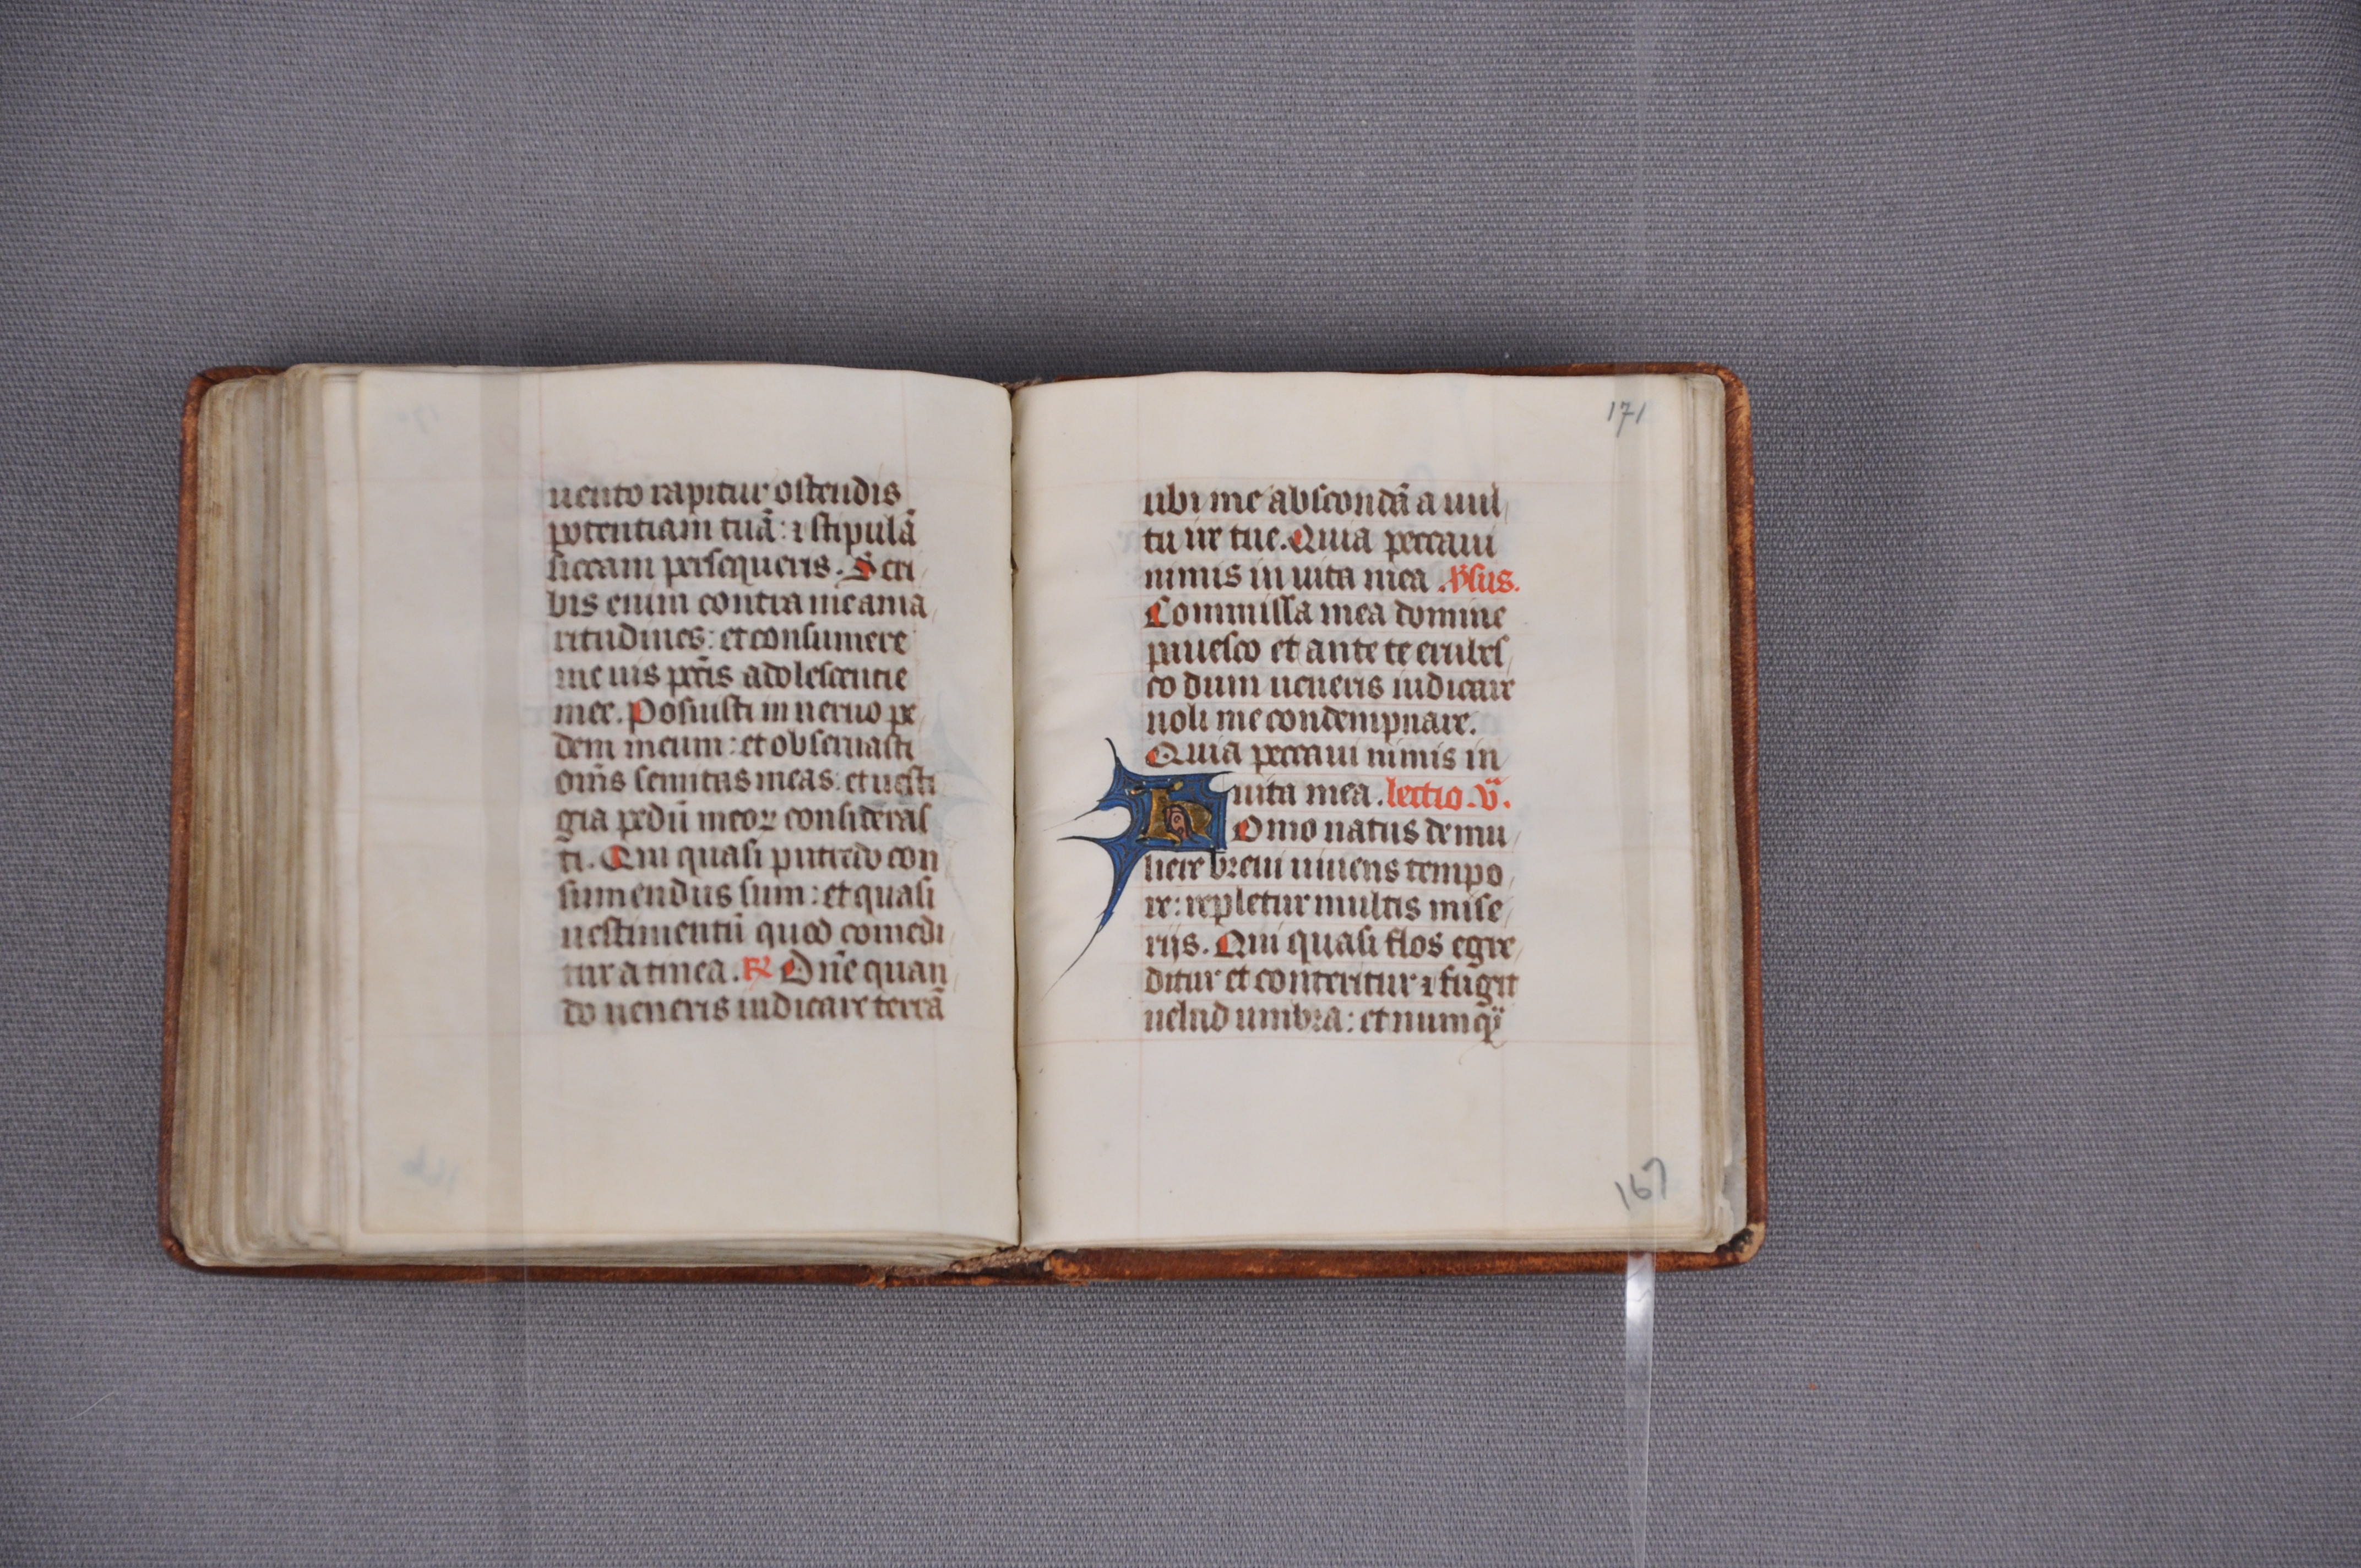 uento rapitur ostendis
potentiam tuā: ⁊ stipulā
siccam persequeris. Scri
bis enim contra me ama
ritudines: et consumere
me uis pctīs adolescentie
mee. Posuisti in neruo pe
dem meum: et obseruasti
om̄s semitas meas: et uesti
gia pedū meoꝝ consideras
ti. Qui quasi putredo con
sumendus sum: et quasi
uestimentū quod comedi
tur a tinea. ℟ Dn̄e quan
do ueneris iudicare terrā
171
ubi me abscondā a uul
tu ire tue. Quia peccaui
nimis in uita mea. ℣sus.
Commissa mea domine
pauesco et ante te erubes
co dum ueneris iudicare
noli me condempnare.
Quia peccaui nimis in
uita mea. lectio. v̄.
hOmo natus de mu
liere breui uiuens tempo
re: repletur multis mise
rijs. Qui quasi flos egre
ditur et conteritur ⁊ fugit
uelud umbra: et numqͣ
167